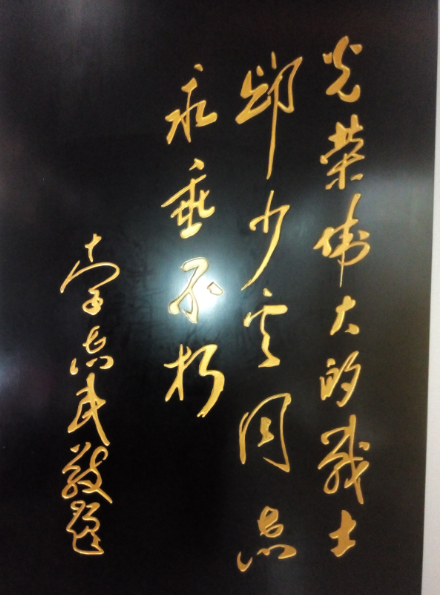 光荣伟大的战士
邱少云同志
永垂不朽
李志民敬题